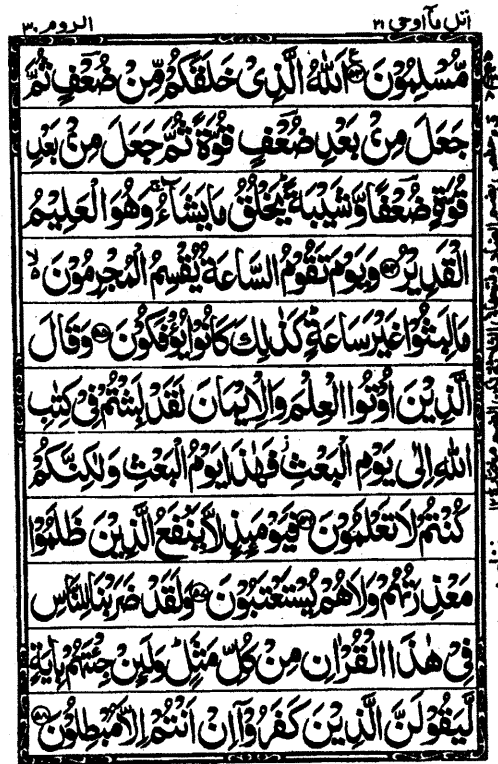 اتل مآ اوحی ۲۱
الروم ۳۰
مُّسْلِمُوْنَ ﴿۵۳﴾ اَللّٰهُ الَّذِیْ خَلَقَكُمْ مِّنْ ضُعْفٍ ثُمَّ
جَعَلَ مِنْۢ بَعْدِ ضُعْفٍ قُوَّةً ثُمَّ جَعَلَ مِنْۢ بَعْدِ
قُوَّةٍ ضُعْفًا وَّشَیْبَةً ؕ یَخْلُقُ مَا یَشَآءُ ۚ وَهُوَ الْعَلِیْمُ
الْقَدِیْرُ ﴿۵۴﴾ وَیَوْمَ تَقُوْمُ السَّاعَةُ یُقْسِمُ الْمُجْرِمُوْنَ ۙ۬
مَا لَبِثُوْا غَیْرَ سَاعَةٍ ؕ كَذٰلِكَ كَانُوْا یُؤْفَكُوْنَ ﴿۵۵﴾ وَقَالَ
الَّذِیْنَ اُوْتُوا الْعِلْمَ وَالْاِیْمَانَ لَقَدْ لَبِثْتُمْ فِیْ كِتٰبِ
اللّٰهِ اِلٰی یَوْمِ الْبَعْثِ ؗ فَهٰذَا یَوْمُ الْبَعْثِ وَلٰكِنَّكُمْ
كُنْتُمْ لَا تَعْلَمُوْنَ ﴿۵۶﴾ فَیَوْمَىِٕذٍ لَّا یَنْفَعُ الَّذِیْنَ ظَلَمُوْا
مَعْذِرَتُهُمْ وَلَا هُمْ یُسْتَعْتَبُوْنَ ﴿۵۷﴾ وَلَقَدْ ضَرَبْنَا لِلنَّاسِ
فِیْ هٰذَا الْقُرْاٰنِ مِنْ كُلِّ مَثَلٍ ؕ وَلَىِٕنْ جِئْتَهُمْ بِاٰیَةٍ
لَّیَقُوْلَنَّ الَّذِیْنَ كَفَرُوْۤا اِنْ اَنْتُمْ اِلَّا مُبْطِلُوْنَ ﴿۵۸﴾